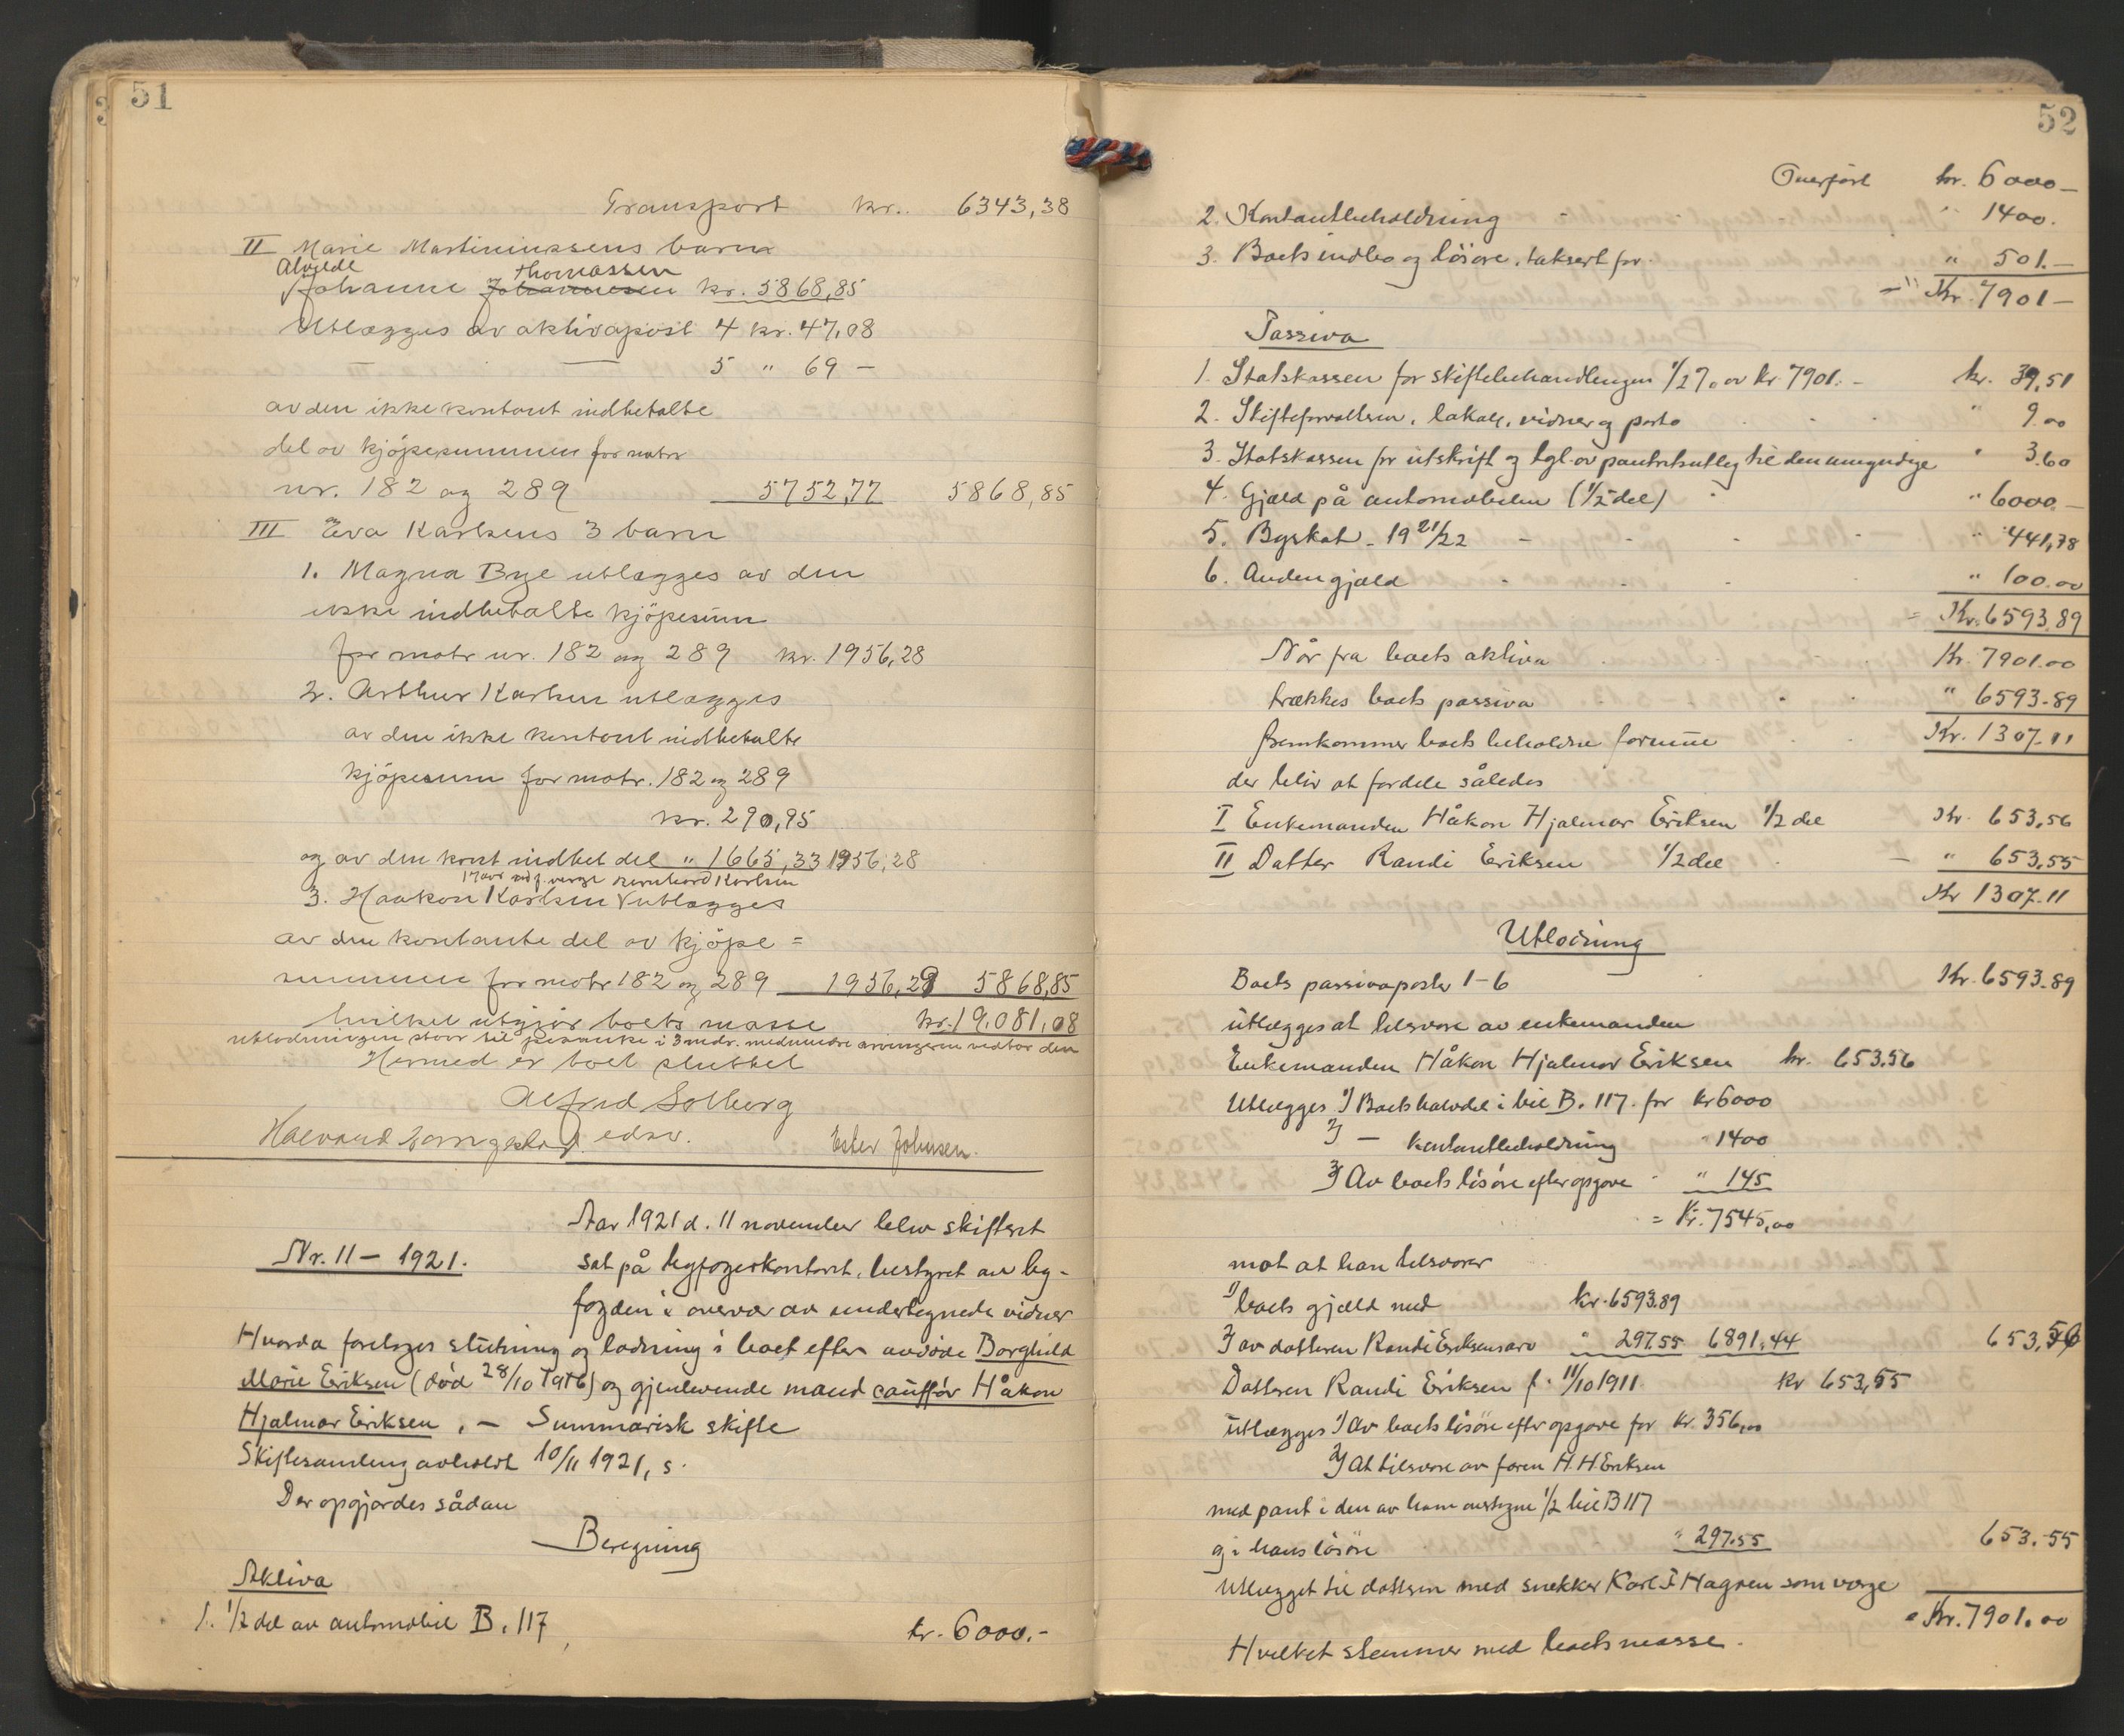 51
Transport kr. 6343,38
II Marie Martiniussens barn
Alvilde Thomassen
Johanne Johannesen kr. 5868,85
Utlægges av aktivapost 4 kr. 47,08
— 5 " 69 —
av den ikke kontant indbetalte
del av kjöpesummen for matr
nr. 182 og 289 5752,77 5868,85
III Eva Karlsens 3 barn
1. Magna Bye utlægges av den
ikke indbetalte kjöpesum
for matr nr. 182 og 289 kr. 1956,28
2. Arthur Karlsen utlægges
av den ikke kontant indbetalte
kjöpesum for matr. 182 og 289
kr. 290,95
og av den kont indbet del " 1665,33 1956,28
17 aar ved f. verge Bernhard Karlsen
3. Haakon Karlsen √ utlægges
av den kontante del av kjöpe =
summen for matr 182 og 289 1956,29 5868,85
hvilket utgjör boets masse kr. 19.081,08
utlodningen staar til paaanke i 3 mdr. medmindre arvingerne vedtar den
Hermed er boet sluttet
Alfred Solberg
edsv. Ester Johnsen.
Nr. 11 – 1921.
Aar 1921 d. 11 november blev skifteret
sat på byfogedkontoret, bestyret av by-
fogden i overvær av undertegnede vidner
Hvorda foretoges slutning og lodning i boet efter avdöde Borghild
Marie Eriksen (död 28/10 1916) og gjenlevende mand caufför Håkon
Hjalmar Eriksen, – Summarisk skifte
Skiftesamling avholdt 10/11 1921, s.
Der opgjordes sådan
Beregning
Aktiva
1. 1/2 del av automobil B. 117 kr. 6000.-
52
Overfört kr. 6000 –
2. Kontantbeholdning " 1400.
3. Boets indbo og lösöre, taksert for " 501.–
= Kr. 7901 –
Passiva
1. Statskassen for skiftebehandlingen 1/2 % av kr 7901.– kr. 39,51
2. Skifteforvalteren, lokale, vidner og porto " 9.00
3. Statskassen for utskrift og tgl. av panteheftelse til den umyndige " 3.60
4. Gjæld på automobilen (1/2 del) " 6000.–
5. Byskat - 1921/22 " 441,78
6. Anden gjæld " 100.00
= Kr. 6593.89
Når fra boets aktiva Kr. 7901.00
trækkes boets passiva " 6593.89
fremkommer boets beholdne formue Kr. 1307.11
der blir at fordele således
I Enkemanden Håkon Hjalmar Eriksen 1/2 del Kr. 653,56
II Datter Randi Eriksen 1/2 del — " 653,55
Kr 1307.11
Utlodning
Boets passivaposter 1-6 Kr. 6593.89
utlægges at tilsvare av enkemanden
Enkemanden Håkon Hjalmar Eriksen kr. 653.56
Utlægges 1) Boets halvdel i bil B. 117. for kr 6000
2) — kontantbeholdning " 1400
3) Av boets lösöre efter opgave " 145
= Kr. 7545,00
mot at han tilsvarer
1) boets gjæld med kr. 6593.89
2) av datteren Randi Eriksens arv " 297.55 6891.44 653,56
Datteren Randi Eriksen f. 11/10 1911 kr 653,55
utlægges 1) av boets lösöre efter opgave for kr. 356,00
2) At tilsvare av faren H. H Eriksen
med pant i den av ham overtagne 1/2 bil B 117
og i hans lösöre " 297.55 653.55
Utlægget til datteren med snekker Karl J. Hagnen som verge
= Kr. 7901.00
Hvilket stemmer med boets masse.